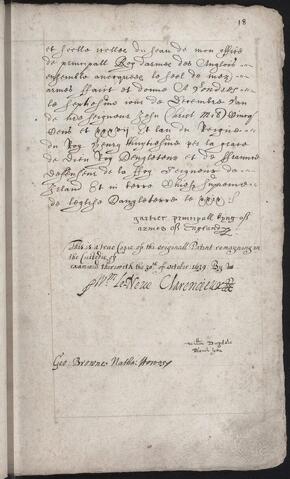 18
et scelle scellee du seau de mon office
de principall Roy darmes des Anglois
ensemble auecques le seel de mez
armes Faict et donne a Londres
le septiesme iour de Decembre lan
de nre Seigneur Jesu Christ
Cent et xxxvij Et lan du Regne
du Roy Henry Huytiesme par la grace
de Dieu Roy Dengleterre et de Fraunce
defenseur de la Foy Seigneur
Irland Et en terre Chief supreme
de leglise Dangleterre le xxix
garter principall kyng of
armes of England
This is a true Copie of the originall Patent remayning in
the Custodie of
examined therewith the 30th of October 1639 By
Wm Le Neve Clarenceux
William Dugdale
Blanch Lyon
Geo: Browne. Natha: